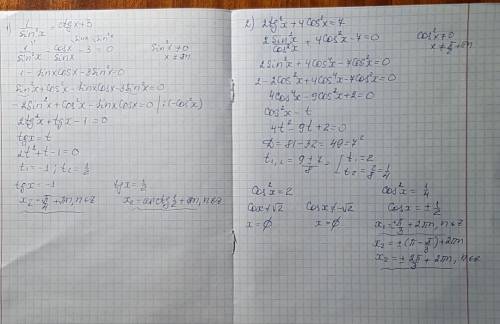 1) 1/sin²x = ctgx+3
1/sin²x - cosx/sinx - 3 = 0   sin²x≠0
x≠πn
1 - sinxcosx - 3sin²x=0
sin²x+cos²x - sinxcosx-3sin²x=0
-2sin²x+cos²x - sinxcosx=0 |:(-cos²x)
2tg²x+tgx-1=0
tgx=t
2t²+t-1=0
t₁=-1; t₂=1/2
tgx=-1   tgx=1/2
x₁=-π/4+πn, n∈z   x₂=arctg 1/2+πn, n∈z
2) 2tg²x+4cos²x=7
2sin²x/cos²x+4cos²x-7=0   cos²x≠0
x≠π/2+πn
2sin²x+4cos⁴x-7cos²x=0
2-2cos²x+4cos⁴x-7cos²x=0
4cos⁴x-9cos²x+2=0
cos²x=t
4t²-9t+2=0
D=81-32=49=7²
t₁,₂=9±7/8   t₁=2
t₂=2/8=1/4
cos²x=2   cos²x=1/4
cosx≠√2   cosx≠-√2   cosx=±1/2
x=∅   x=∅   x₁=±π/3+2πn, n∈z
x₂=±(π-π/3)+2πn
x₂=±2π/3+2πn, n∈z